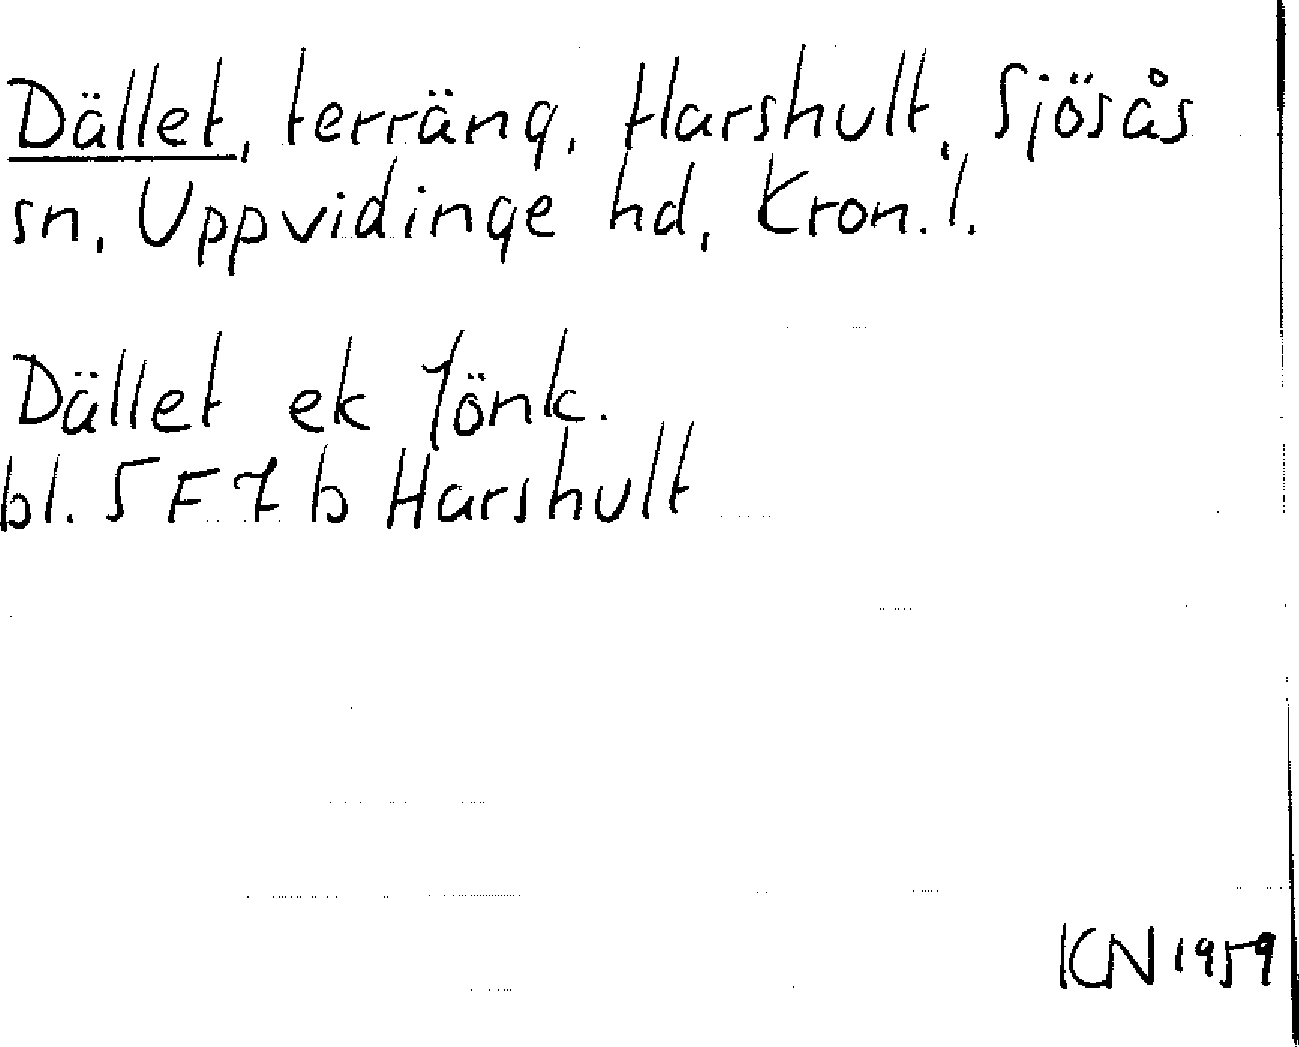 Dället, terräng, Harshult, Sjösås
sn, Uppvidinge hd, Kron.l.
Dället ek Jönk.
bl. 5 F 7 b Harshult
KN 1959